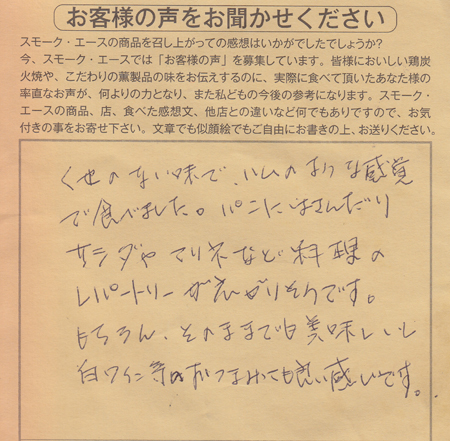 お客様の声をお聞かせください
スモーク・エースの商品を召し上がっての感想はいかがでしたでしょうか?
今、スモーク・エースでは「お客様の声」を募集しています。皆様においしい鶏炭
火焼や、こだわりの薫製品の味をお伝えするのに、実際に食べて頂いたあなた様の
率直なお声が、何よりの力となり、また私どもの今後の参考になります。スモーク・
エースの商品、店、食べた感想文、他店との違いなど何でもありですので、お気
付きの事をお寄せ下さい。文章でも似顔絵でもご自由にお書きの上、お送りください。
くせのない味で、ハムのような感覚
で食べました。パンにはさんだり
サラダやマリネなど料理の
レパートリーが広がりそうです。
もちろん、そのままでも美味しいし
白ワイン等のおつまみにも良い感じです。